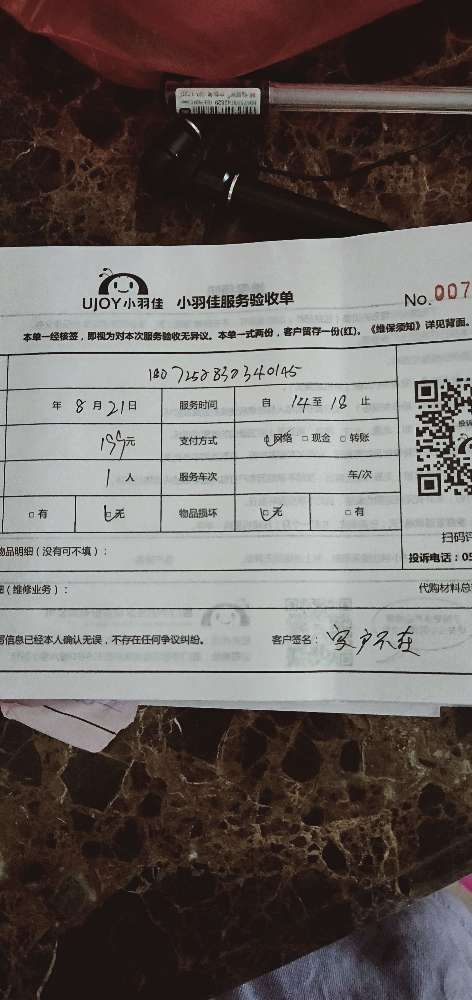 UJOY小羽佳 小羽佳服务验收单 No.007
本单一经核签，即视为对本次服务验收无异议。本单一式两份，客户留存一份(红)。《维保须知》详见背面。
年 8 月 21 日 服务时间 自 14 至 18 止
199元 支付方式 网络 □ 现金 □ 转账
1 人 服务车次 车/次
□ 有 □ 无 物品损坏 □ 无 □ 有
物品明细（没有可不填）：
扫码评
投诉电话：05
（维修业务）：
代购材料总
写信息已经本人确认无误，不存在任何争议纠纷。 客户签名：客户不在